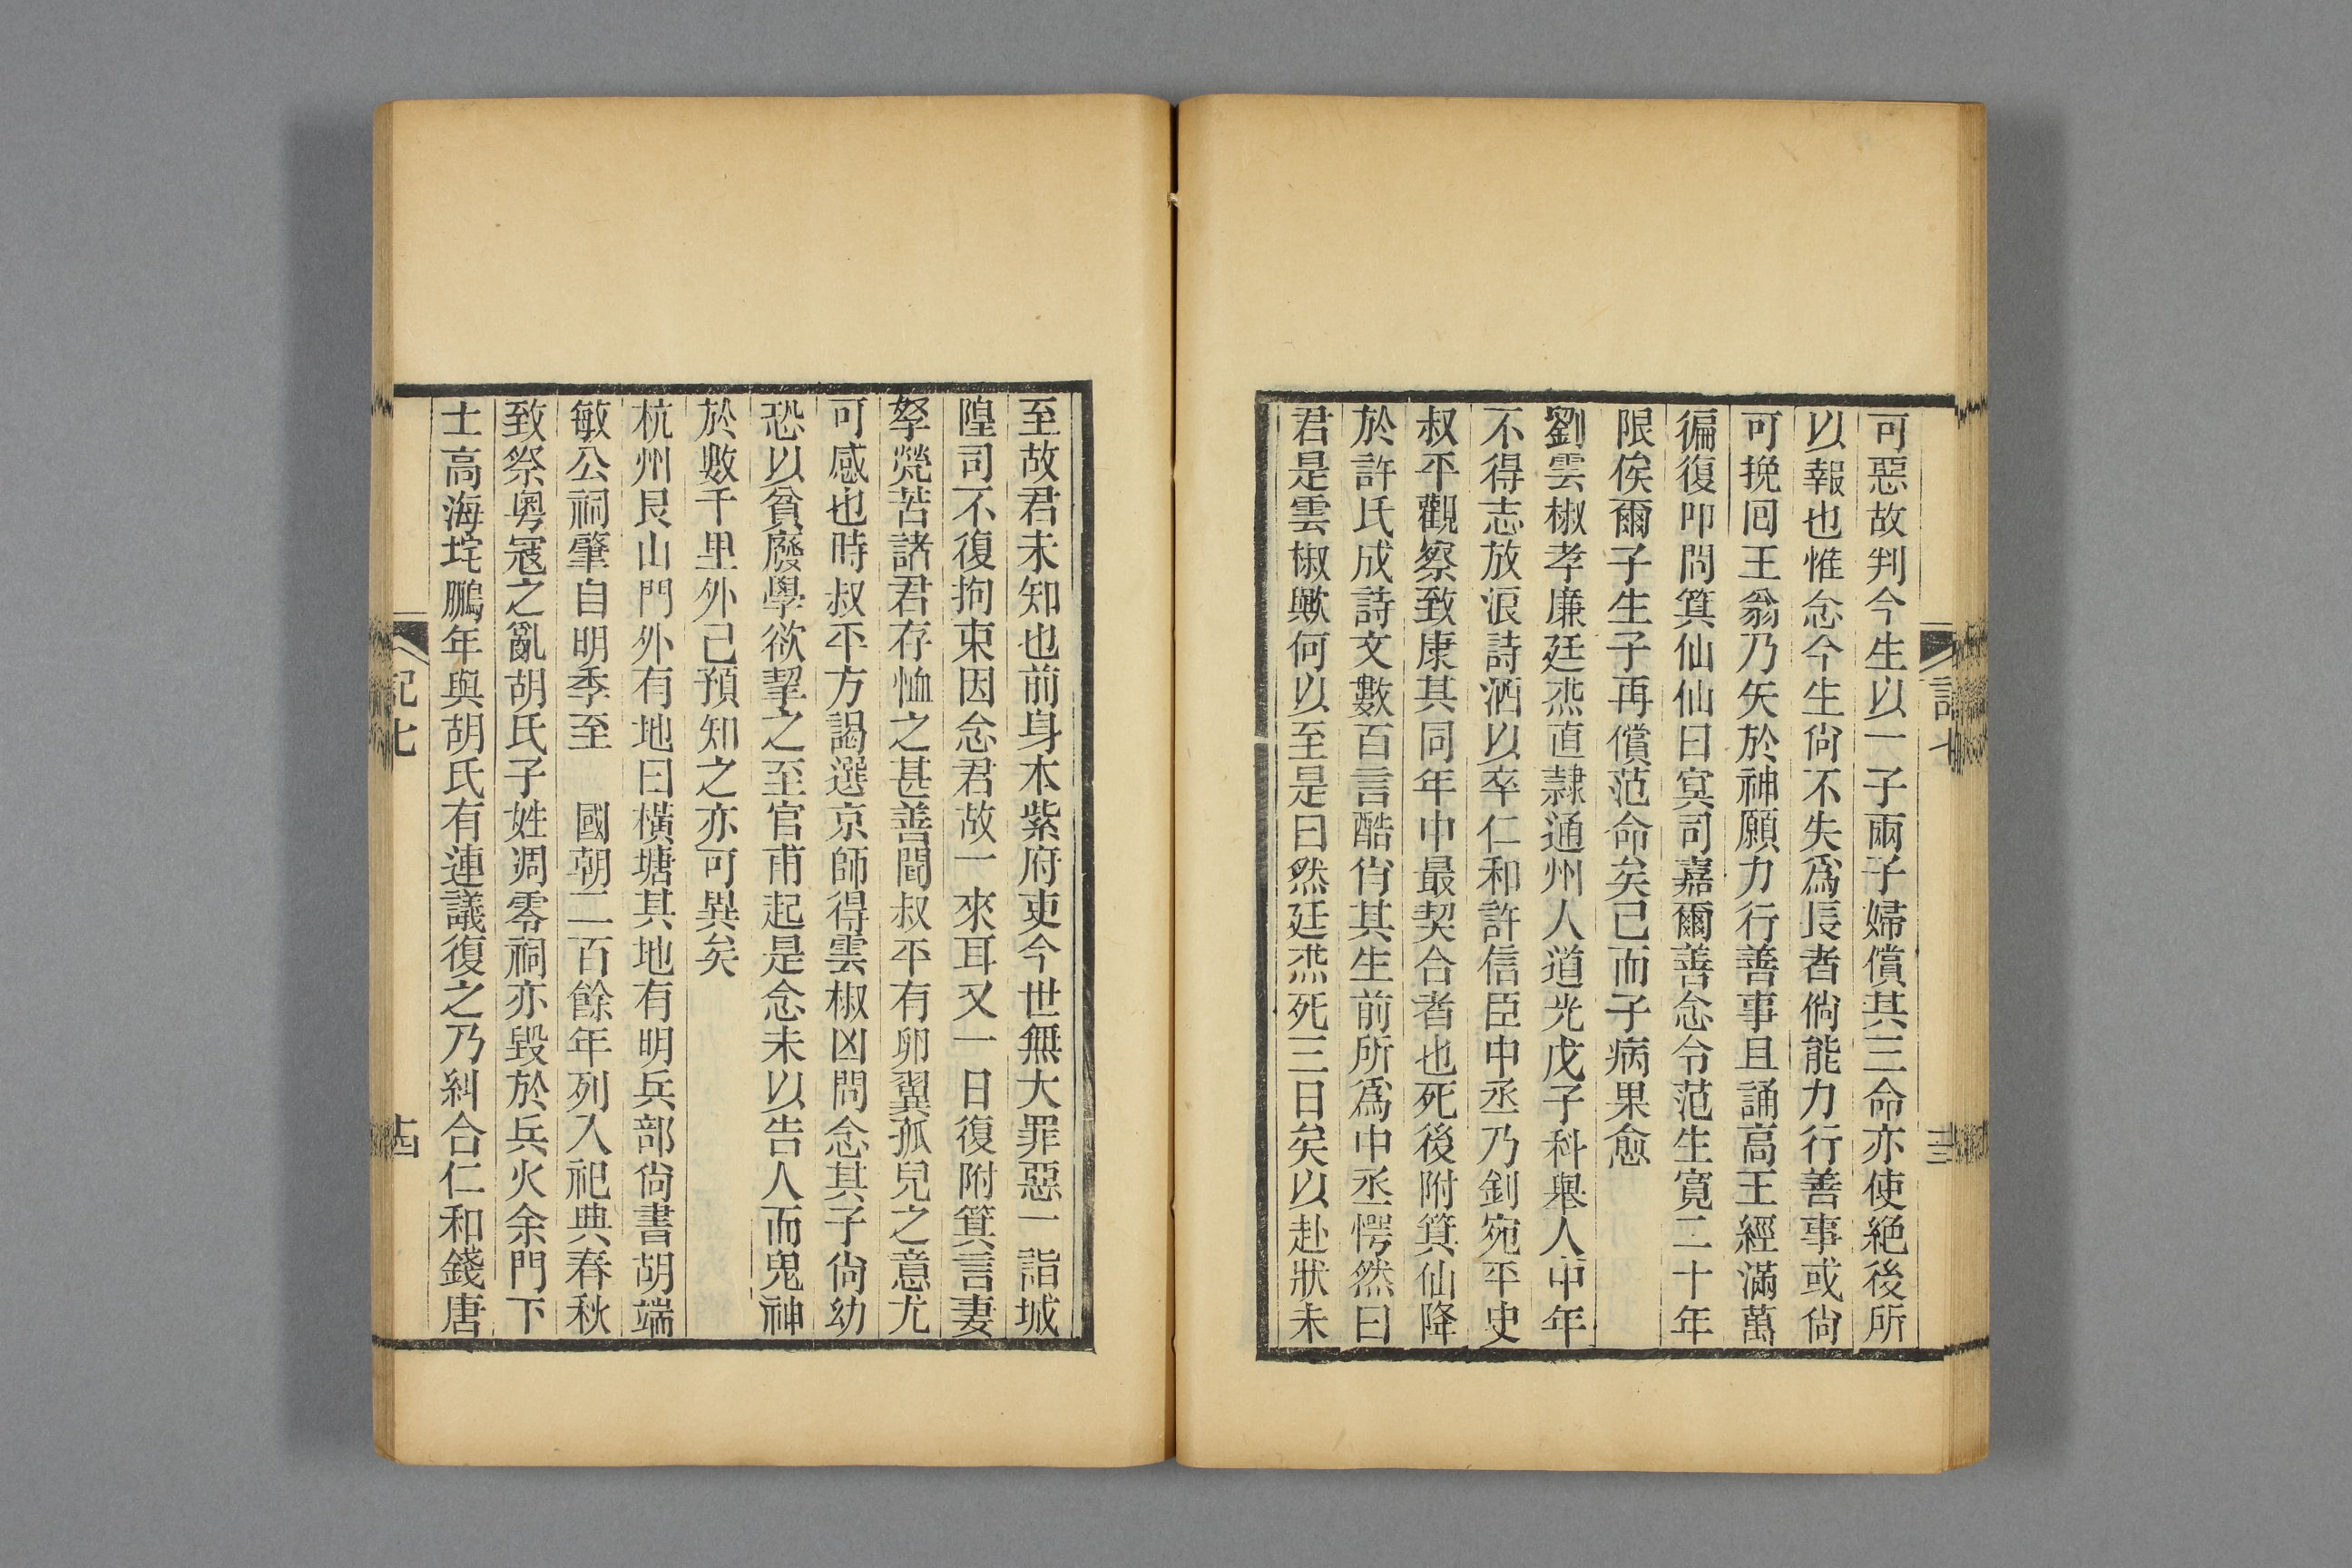 可惡故判今生以一子兩子婦償其三命亦使絕後所
以報也惟念今生尙不失爲長者倘能力行善事或尙
可挽囘王翁乃矢於神願力行善事且誦高王經滿萬
徧復叩問箕仙仙曰冥司嘉爾善念令范生寬二十年
限俟爾子生子再償范命矣已而子病果愈
劉雲椒孝廉廷烝直隸通州人道光戊子科舉人中年
不得志放浪詩酒以卒仁和許信臣中丞乃釗宛平史
叔平觀察致康其同年中最契合者也死後附箕仙降
於許氏成詩文數百言酷肖其生前所爲中丞愕然曰
君是雲椒歟何以至是曰然廷烝死三日矣以赴狀未
至故君未知也前身本紫府吏今世無大罪惡一詣城
隍司不復拘束因念君故一來耳又一日復附箕言妻
孥煢苦諸君存恤之甚善聞叔平有卵翼孤兒之意尤
可感也時叔平方謁選京師得雲椒凶問念其子尙幼
恐以貧廢學欲挈之至官甫起是念未以告人而鬼神
於數千里外已預知之亦可異矣
杭州艮山門外有地曰橫塘其地有明兵部尙書胡端
敏公祠肇自明季至　國朝二百餘年列入祀典春秋
致祭粵寇之亂胡氏子姓凋零祠亦毀於兵火余門下
士高海垞鵬年與胡氏有連議復之乃糾合仁和錢唐
記七
十四